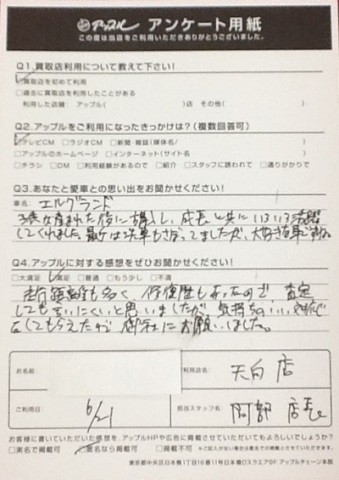 アップル アンケート用紙
この度は当店をご利用いただきありがとうございました。
Q1.買取店利用について教えて下さい!
□買取店を初めて利用
□過去に買取店を利用したことがある
利用した店舗 アップル( )店 その他( )
Q2.アップルをご利用になったきっかけは?(複数回答可)
□テレビCM □ラジオCM □新聞・雑誌(媒体名/ )
□アップルのホームページ □インターネット(サイト名 )
□チラシ □DM □利用経験があるので □紹介 □スタッフに誘われて □通りがかりで
Q3.あなたと愛車との思い出をお聞かせください!
車名: エルグランド
3歳 産まれた後に購入し、成長と共にいろいろ活躍
してくれました。最近は洗車もさぼってましたが、大好きな車です。
Q4.アップルに対する感想をぜひお聞かせください!
□大満足 □満足 □普通 □もう少し □不満
走行距離も多く、修復歴もあったので、査定
してもらいにくいと思いましたが、気持ちのいい対応
をしてもらえたので御社にお願いしました。
お名前
ご利用店名 天白店
ご利用日 6/21
担当スタッフ名 阿部店長
お客様に書いていただいた感想を アップルHPや広告に掲載させていただいてもよろしいでしょうか?
□実名で掲載可 □匿名なら掲載可 □掲載不可
東京都中央区日本橋1丁目16番11号日本橋Dスクエア5F アップルチェーン本部